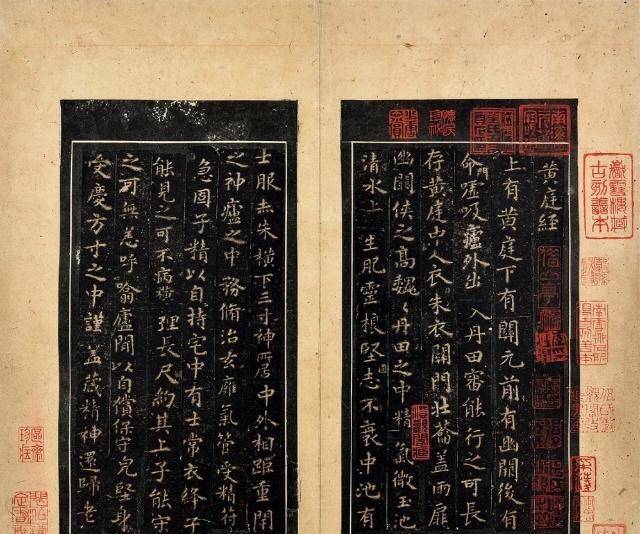 黃庭經
上有黃庭下有關元前有幽闕後有
命門噓吸廬外出入丹田審能行之可長
存黃庭中人衣朱衣關門壯蘥蓋兩扉
幽闕俠之高魏〻丹田之中精氣微玉池
清水上生肥靈根堅志不衰中池有
士服赤朱橫下三寸神所居中外相距重閉
之神廬之中務脩治玄廱氣管受精符
急固子精以自持宅中有士常衣絳子
能見之可不病橫理長尺約其上子能守
之可無恙呼噏廬間以自償保守完堅身
受慶方寸之中謹蓋藏精神還歸老